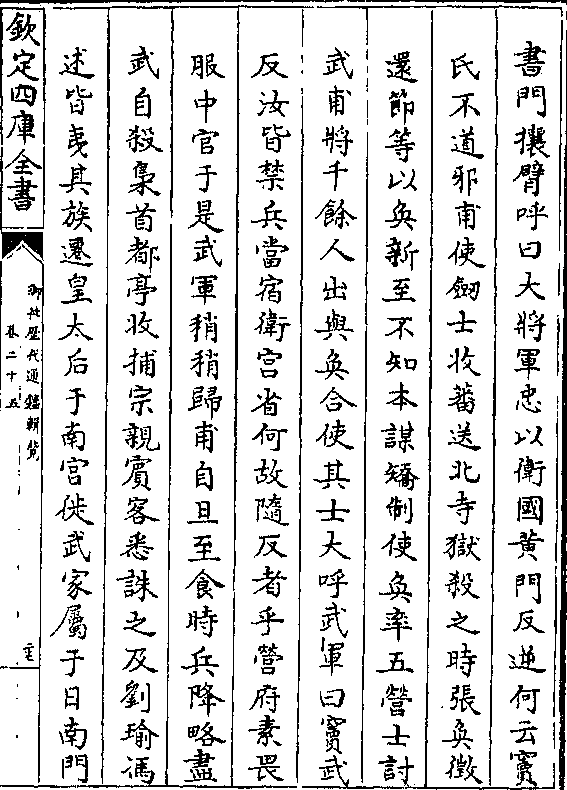 書門攘臂呼曰大將軍忠以衛國黄門反逆何云竇
氏不道邪甫使劒士收蕃送北寺獄殺之時張奐徵
還節等以奐新至不知本謀矯制使奐率五營士討
武甫將千餘人出與奐合使其士大呼武軍曰竇武
反汝皆禁兵當宿衛宫省何故隨反者乎營府素畏
服中官于是武軍稍稍歸甫自旦至食時兵降略盡
武自殺梟首都亭收捕宗親賓客悉誅之及劉瑜馮
述皆夷其族遷皇太后于南宫徙武家屬于日南門
欽定四庫全書
御批歷代通鑑輯覽
卷二十五